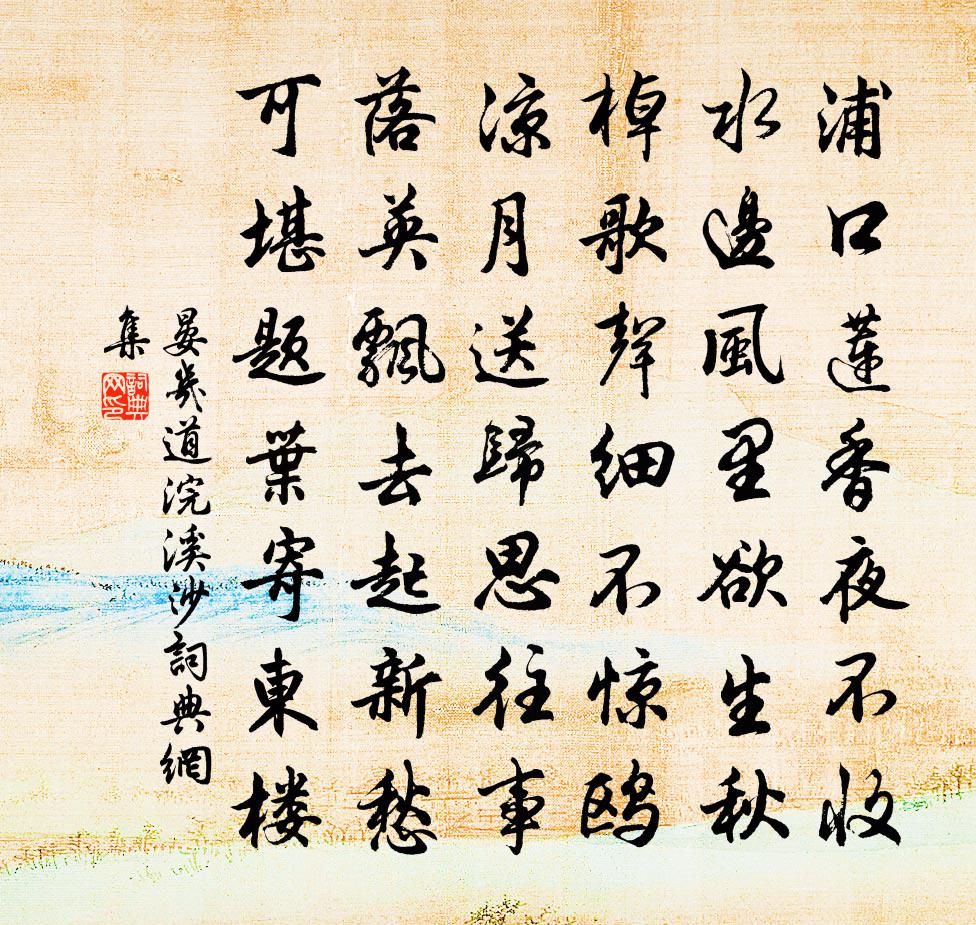 浦口蓮香夜不收
水邊風里欲生秋
棹歌聲细不惊鸥
凉月送歸思往事
落英飄去起新愁
可堪题葉寄東楼
晏幾道浣溪沙詞典網
集
詞典
网印